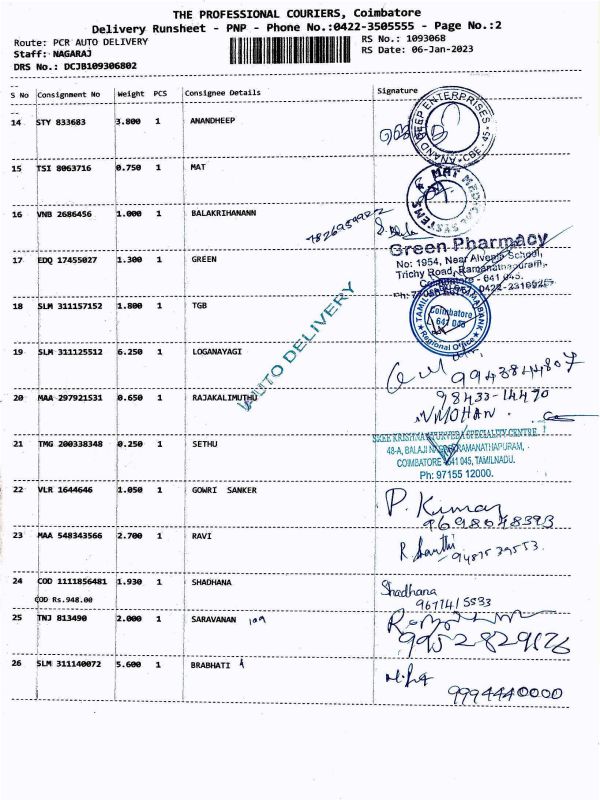 THE PROFESSIONAL COURIERS, Coimbatore
Delivery Runsheet - PNP - Phone No.:0422-3505555 - Page No.:2
Route: PCR AUTO DELIVERY
RS No.: 1093068
Staff: NAGARAJ
RS Date: 06-Jan-2023
DRS No.: DCJB109306802
S No Consignment No Weight PCS Consignee Details Signature
14 STY 833683 3.800 1 ANANDHEEP
ANAND DEEP ENTERPRISES CBE - 45
15 TSI 8063716 0.750 1 MAT
MAT MEDICAL SYSTEMS
16 VNB 2686456 1.000 1 BALAKRIHANANN
17 EDQ 17455027 1.300 1 GREEN
Green Pharmacy
No: 1954, Near Alvernia School,
Trichy Road, Ramanathapuram,
Coimbatore - 641 045.
18 SLM 311157152 1.800 1 TGB
Coimbatore
641 045
Regional Office
AUTO DELIVERY
19 SLM 311125512 6.250 1 LOGANAYAGI
9943844807
20 MAA 297921531 0.650 1 RAJAKALIMUTHU
98433-14470
VMOHAN
21 TMG 200338348 0.250 1 SETHU
SREE KRISHNA AYURVEDA SPECIALITY CENTRE
48-A, BALAJI RAMANATHAPURAM,
COIMBATORE - 641 045, TAMILNADU.
Ph: 97155 12000.
22 VLR 1644646 1.050 1 GOWRI SANKER
P. Kumar
9698048393
23 MAA 548343566 2.700 1 RAVI
R. Santhi
24 COD 1111856481 1.930 1 SHADHANA
COD Rs.948.00
Shadhana
25 TNJ 813490 2.000 1 SARAVANAN
9952829126
26 SLM 311140072 5.600 1 BRABHATI
9994440000